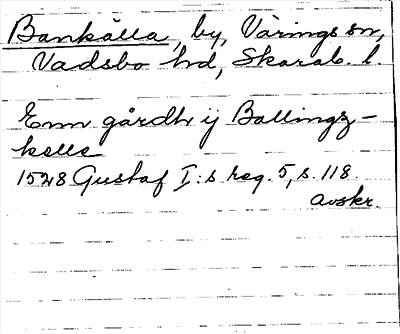 Bankälla, by, Värings sn,
Vadsbo hd, Skarab. l.
Enn gårdh ij Ballingz-
kelle
1528 Gustaf I:s reg. 5, s. 118.
avskr.